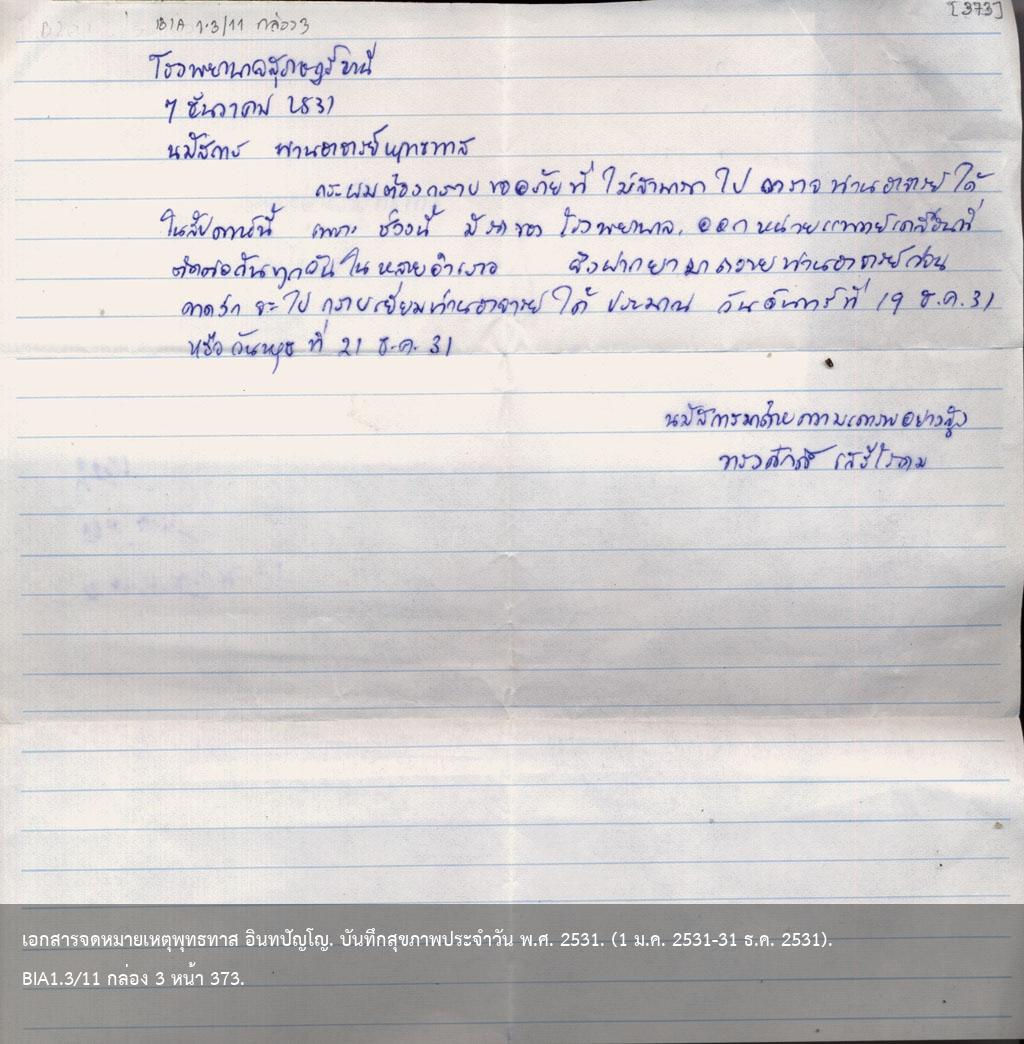 BIA 1.3/11 กล่อง 3
[373]
โรงพยาบาลสุราษฎร์ธานี
7 ธันวาคม 2531
นมัสการ ท่านอาจารย์พุทธทาส
กระผมต้องกราบขออภัยที่ ไม่สามารถไป ตรวจท่านอาจารย์ได้
ในสัปดาห์นี้ เพราะ ช่วงนี้ โรงพยาบาล ออกหน่วยแพทย์เคลื่อนที่
ติดต่อกันทุกวัน ในหลายอำเภอ จึงฝากยามาถวายท่านอาจารย์ก่อน
คาดว่า จะไป กราบเยี่ยมท่านอาจารย์ ได้ ประมาณ วันจันทร์ที่ 19 ธ.ค. 31
หรือ วันพุธ ที่ 21 ธ.ค. 31
นมัสการมาด้วยความเคารพอย่างสูง
ทรงศักดิ์
เอกสารจดหมายเหตุพุทธทาส อินทปัญโญ. บันทึกสุขภาพประจำวัน พ.ศ. 2531. (1 ม.ค. 2531-31 ธ.ค. 2531).
BIA1.3/11 กล่อง 3 หน้า 373.